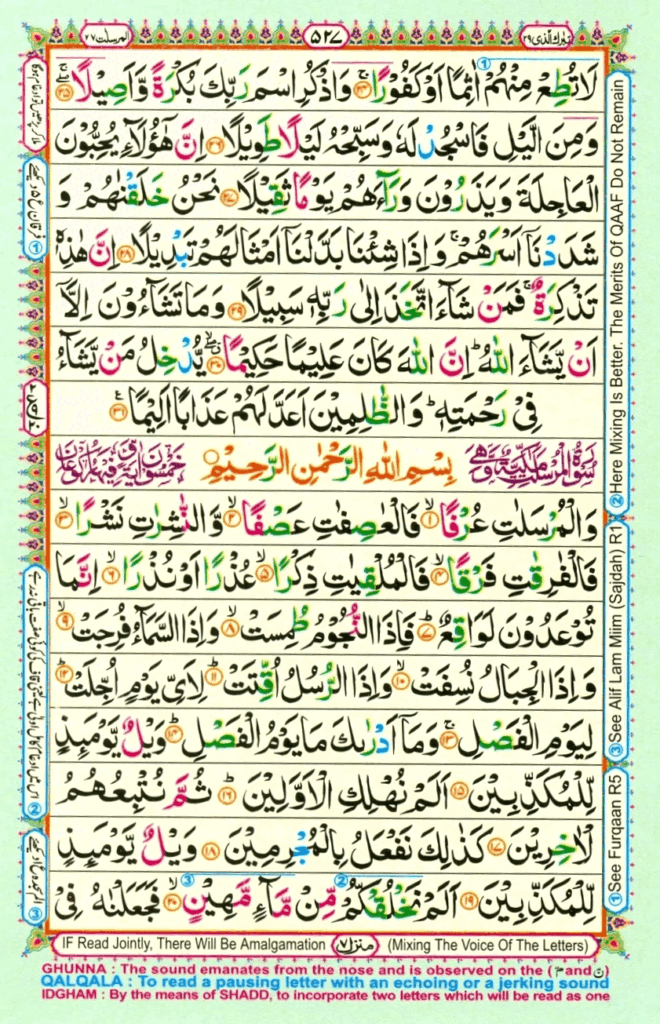 المرسلت ٧٧
٥٢٧
تبٰرك الذی ٢٩
لَا تُطِعْ مِنْهُمْ اٰثِمًا اَوْ كَفُوْرًا ۚ﴿۲۴﴾ وَاذْكُرِ اسْمَ رَبِّكَ بُكْرَةً وَّاَصِيْلًا ۖۚ﴿۲۵﴾
وَمِنَ الَّيْلِ فَاسْجُدْ لَهٗ وَسَبِّحْهُ لَيْلًا طَوِيْلًا ﴿۲۶﴾ اِنَّ هٰٓؤُلَآءِ يُحِبُّوْنَ
الْعَاجِلَةَ وَيَذَرُوْنَ وَرَآءَهُمْ يَوْمًا ثَقِيْلًا ﴿۲۷﴾ نَحْنُ خَلَقْنٰهُمْ وَ
شَدَدْنَاۤ اَسْرَهُمْ ۚ وَاِذَا شِئْنَا بَدَّلْنَاۤ اَمْثَالَهُمْ تَبْدِيْلًا ﴿۲۸﴾ اِنَّ هٰذِهٖ
تَذْكِرَةٌ ۚ فَمَنْ شَآءَ اتَّخَذَ اِلٰى رَبِّهٖ سَبِيْلًا ﴿۲۹﴾ وَمَا تَشَآءُوْنَ اِلَّاۤ
اَنْ يَّشَآءَ اللّٰهُ ؕ اِنَّ اللّٰهَ كَانَ عَلِيْمًا حَكِيْمًا ۖۗ﴿۳۰﴾ يُّدْخِلُ مَنْ يَّشَآءُ
فِىْ رَحْمَتِهٖ ؕ وَالظّٰلِمِيْنَ اَعَدَّ لَهُمْ عَذَابًا اَلِيْمًا ﴿۳۱﴾ ع
سُوْرَةُ الْمُرْسَلٰتِ مَكِّيَّةٌ وَّهِىَ بِسْمِ اللّٰهِ الرَّحْمٰنِ الرَّحِيْمِ خَمْسُوْنَ اٰيَةً وَّفِيْهَا رُكُوْعَانِ
وَالْمُرْسَلٰتِ عُرْفًا ۙ﴿۱﴾ فَالْعٰصِفٰتِ عَصْفًا ۙ﴿۲﴾ وَّالنّٰشِرٰتِ نَشْرًا ۙ﴿۳﴾
فَالْفٰرِقٰتِ فَرْقًا ۙ﴿۴﴾ فَالْمُلْقِيٰتِ ذِكْرًا ۙ﴿۵﴾ عُذْرًا اَوْ نُذْرًا ۙ﴿۶﴾ اِنَّمَا
تُوْعَدُوْنَ لَوَاقِعٌ ؕ﴿۷﴾ فَاِذَا النُّجُوْمُ طُمِسَتْ ۙ﴿۸﴾ وَاِذَا السَّمَآءُ فُرِجَتْ ۙ﴿۹﴾
وَاِذَا الْجِبَالُ نُسِفَتْ ۙ﴿۱۰﴾ وَاِذَا الرُّسُلُ اُقِّتَتْ ؕ﴿۱۱﴾ لِاَىِّ يَوْمٍ اُجِّلَتْ ؕ﴿۱۲﴾
لِيَوْمِ الْفَصْلِ ۚ﴿۱۳﴾ وَمَاۤ اَدْرٰىكَ مَا يَوْمُ الْفَصْلِ ؕ﴿۱۴﴾ وَيْلٌ يَّوْمَئِذٍ
لِّلْمُكَذِّبِيْنَ ﴿۱۵﴾ اَلَمْ نُهْلِكِ الْاَوَّلِيْنَ ؕ﴿۱۶﴾ ثُمَّ نُتْبِعُهُمُ
الْاٰخِرِيْنَ ﴿۱۷﴾ كَذٰلِكَ نَفْعَلُ بِالْمُجْرِمِيْنَ ﴿۱۸﴾ وَيْلٌ يَّوْمَئِذٍ
لِّلْمُكَذِّبِيْنَ ﴿۱۹﴾ اَلَمْ نَخْلُقْكُّمْ مِّنْ مَّآءٍ مَّهِيْنٍ ۙ﴿۲۰﴾ فَجَعَلْنٰهُ فِىْ
② Here Mixing Is Better. The Merits Of QAAF Do Not Remain
③ See Alif Lam Miim (Sajdah) R1
① See Furqaan R5
IF Read Jointly, There Will Be Amalgamation
منزل ٧
(Mixing The Voice Of The Letters)
GHUNNA : The sound emanates from the nose and is observed on the (م and ن)
QALQALA : To read a pausing letter with an echoing or a jerking sound
IDGHAM : By the means of SHADD, to incorporate two letters which will be read as one